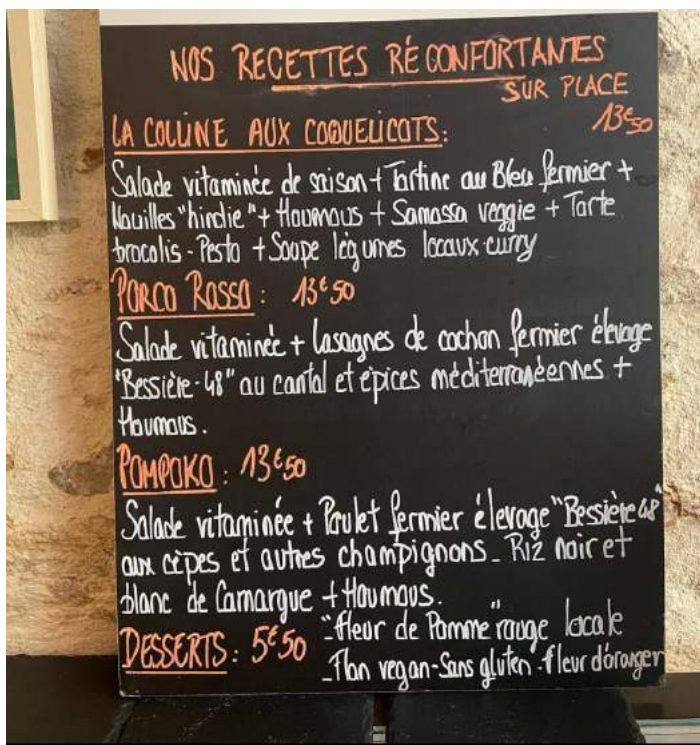 NOS RECETTES RÉCONFORTANTES
SUR PLACE
LA COLLINE AUX COQUELICOTS: 13€50
Salade vitaminée de saison + Tartine au Bleu fermier +
Nouilles "hindie" + Houmous + Samossa veggie + Tarte
brocolis - Pesto + Soupe légumes locaux-curry
PORCO ROSSO : 13€50
Salade vitaminée + Lasagnes de cochon fermier élevage
"Bessière-48" au cantal et épices méditerranéennes +
Houmous.
POMPOKO : 13€50
Salade vitaminée + Poulet fermier élevage "Bessière 48"
aux cèpes et autres champignons _ Riz noir et
blanc de Camargue + Houmous.
DESSERTS : 5€50 - "fleur de Pomme" rouge locale
- Flan vegan - Sans gluten - fleur d'oranger